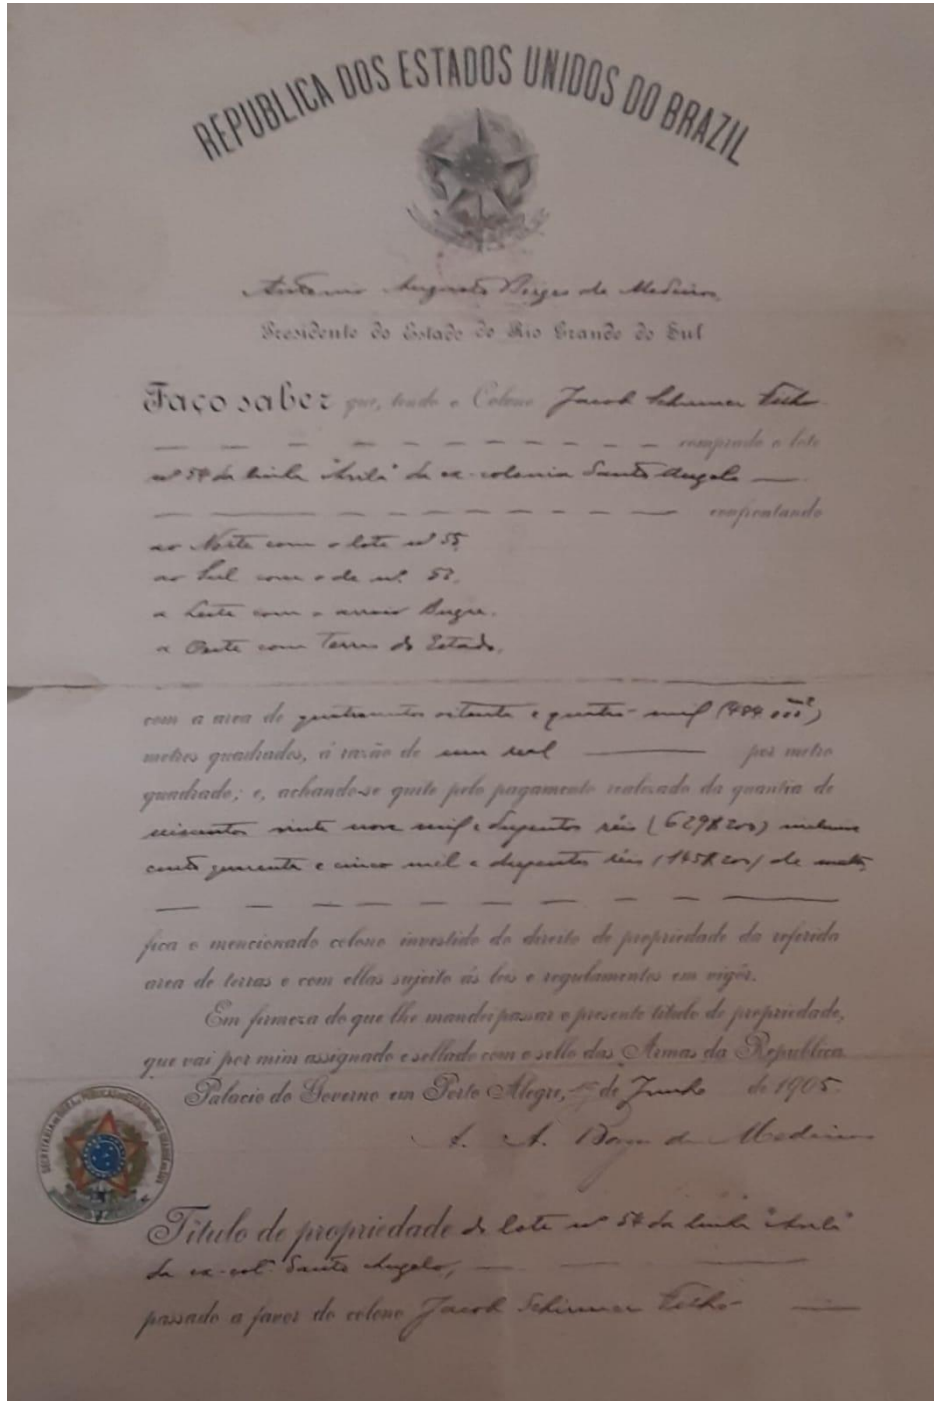 REPUBLICA DOS ESTADOS UNIDOS DO BRAZIL
Antonio Augusto Borges de Medeiros
Presidente do Estado do Rio Grande do Sul
Faço saber que, tendo o Colono Jacob Schirmer Filho
comprado o lote
nº 54 da linha "Avila" da ex-colonia Santo Angelo
confrontando
ao Norte com o lote nº 55
ao Sul com o de nº 53.
a Leste com o arroio Bugre.
a Oeste com Terras do Estado,
com a area de quatrocentos oitenta e quatro mil (484.000²)
metros quadrados, á razão de um real por metro
quadrado; e, achando-se quite pelo pagamento realizado da quantia de
seiscentos vinte nove mil e duzentos réis (629$200) inclusive
cento quarenta e cinco mil e duzentos réis (145$200) de
fica o mencionado colono investido do direito de propriedade da referida
area de terras e com ellas sujeito ás leis e regulamentos em vigôr.
Em firmeza do que lhe mandei passar o presente titulo de propriedade,
que vai por mim assignado e sellado com o sello das Armas da Republica
Palacio do Governo em Porto Alegre, de Junho de 1905
A. A. Borges de Medeiros
SECRETARIA DAS OBRAS PUBLICAS DO ESTADO DO RIO GRANDE DO SUL
Titulo de propriedade do lote nº 54 da linha "Avila"
da ex-colª Santo Angelo,
passado a favor do colono Jacob Schirmer Filho